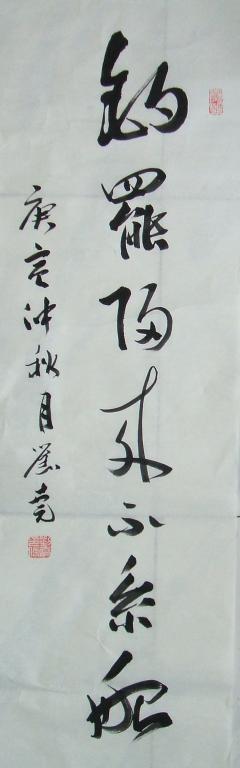 釣罷歸來不系船
庚寅仲秋月